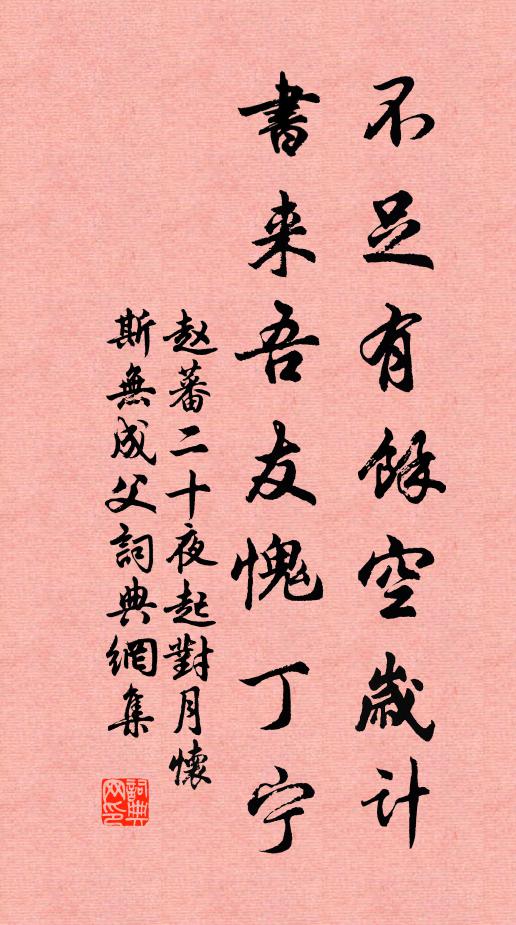 不足有餘空歲计
書来吾友愧丁宁
赵蕃二十夜起對月懷
斯無成父詞典網集
詞典网印